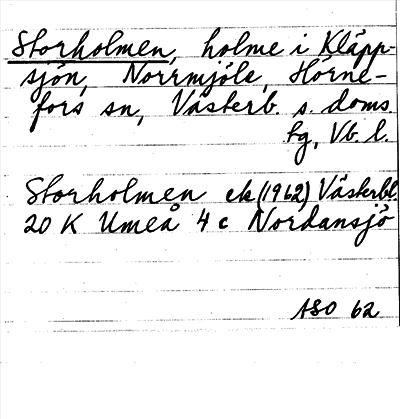 Storholmen, holme i Kläpp-
sjön, Norrmjöle, Hörne-
fors sn, Västerb. s. doms.
tg, Vb. l.
Storholmen ek (1962) Västerbl.
20 K Umeå 4 c Nordansjö
ASO 62